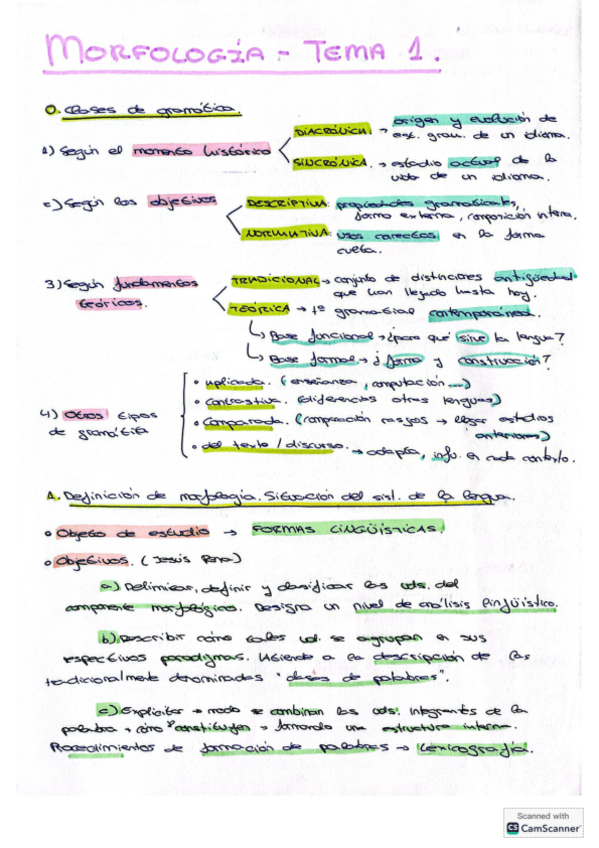 MORFOLOGÍA - TEMA 1.
0. Clases de gramática.
DIACRÓNICA. → origen y evolución de
est. gram. de un idioma.
1) Según el momento histórico
SINCRÓNICA. → estadio actual de la
vida de un idioma.
2) Según los objetivos
DESCRIPTIVA: propiedades gramaticales,
forma externa, composición interna.
NORMATIVA: usos correctos, en la forma
culta.
3) Según fundamentos
teóricos.
TRADICIONAL → conjunto de distinciones antigüedad
que han llegado hasta hoy.
TEÓRICA → gramatical contemporánea.
↳ Base funcional → ¿para qué sirve la lengua?
↳ Base formal → ¿forma y construcción?
4) Otros tipos
de gramática
• aplicada. (enseñanza, computación ...)
• contrastiva. (diferencias otras lenguas)
• comparada. (comparación rasgos → llegar estadios
anteriores)
• del texto / discurso. → adapta, info. en cada contexto.
1. Definición de morfología. Situación del sist. de la lengua.
• Objeto de estudio → FORMAS LINGÜÍSTICAS.
• Objetivos. (Jesús Pena)
a) Delimitar, definir y clasificar las uds. del
componente morfológico. Designa un nivel de análisis lingüístico.
b) Describir cómo tales ud. se agrupan en sus
respectivos paradigmas. Atiende a la descripción de las
tradicionalmente denominadas "clases de palabras".
c) Explicitar → modo se combinan las uds. integrantes de la
palabra + cómo constituyen → formando una estructura interna.
Procedimientos de formación de palabras → Lexicografía.
Scanned with
CS CamScanner